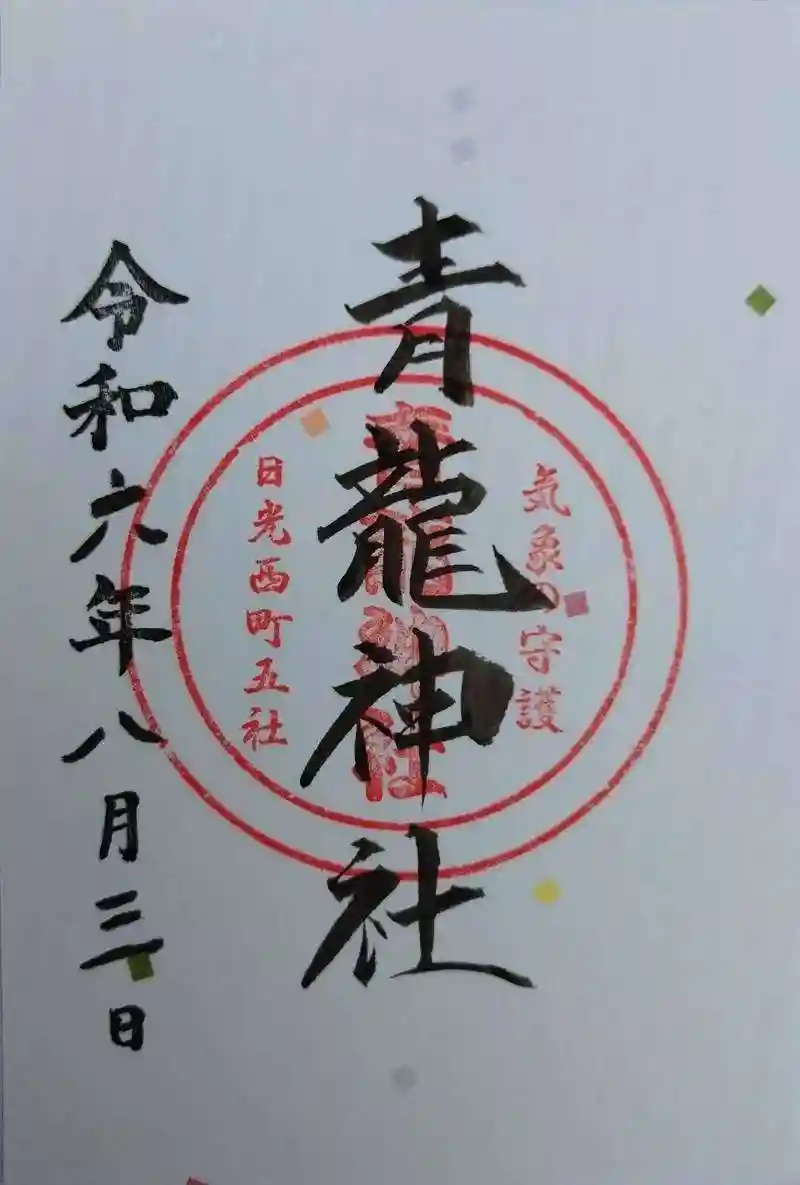 気象の守護
青龍神社
青龍神社
日光西町五社
令和六年八月三日